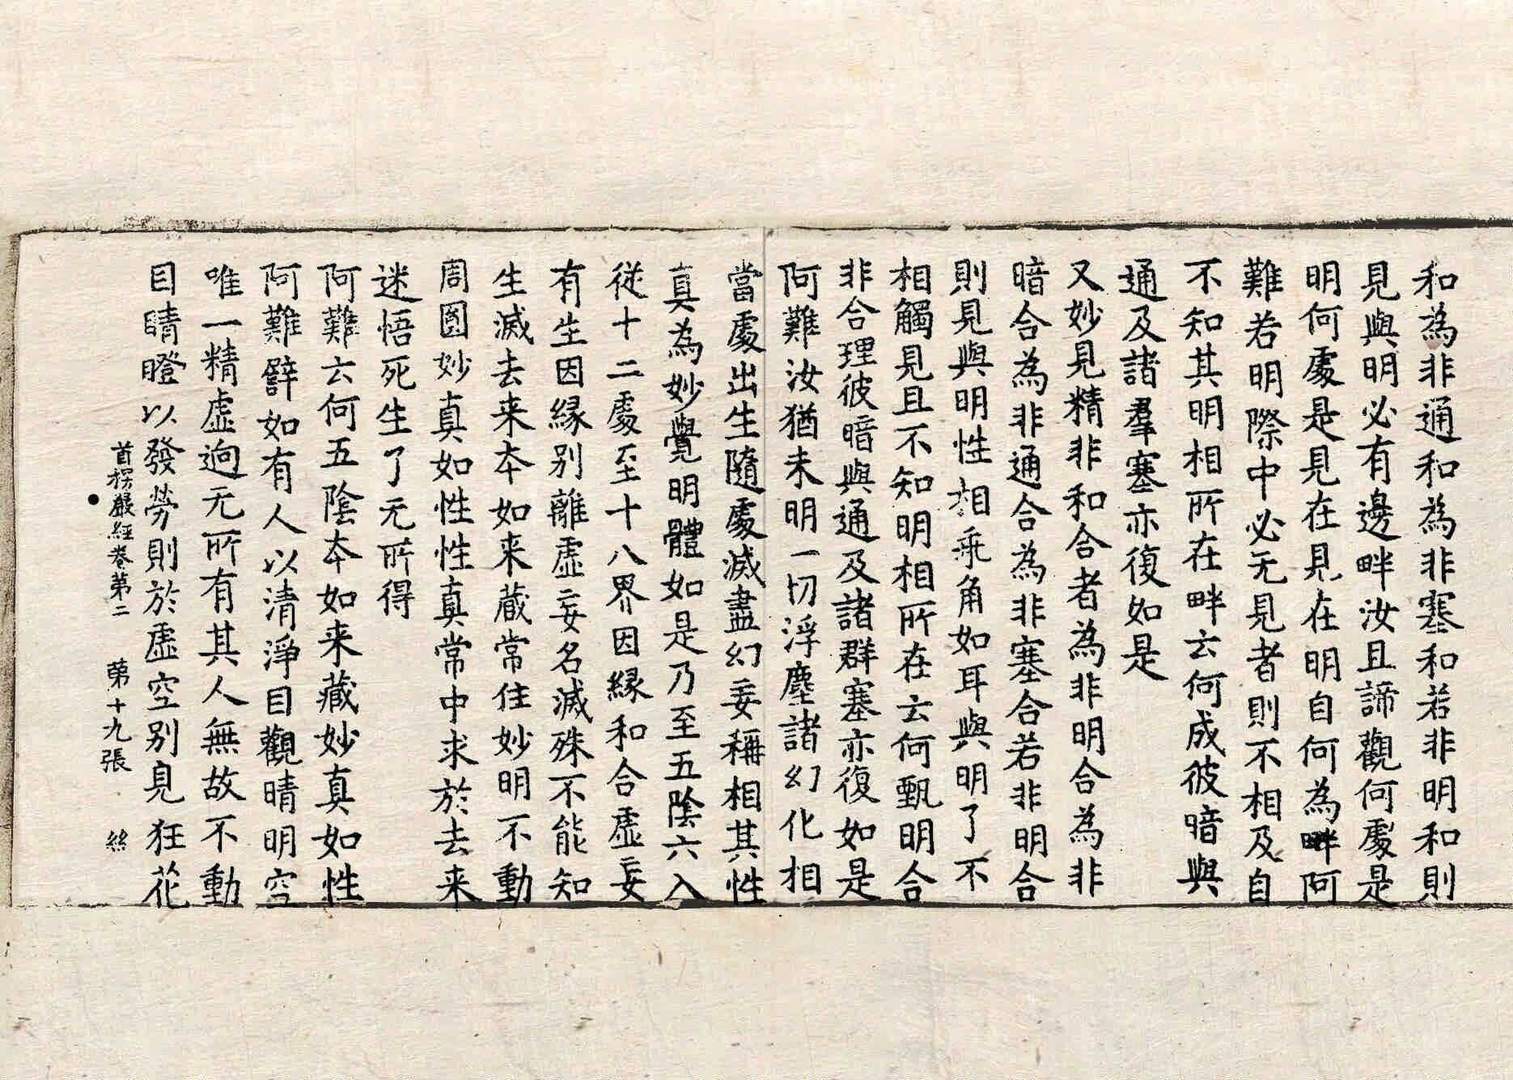 和為非通和為非塞和若非明和則
見與明必有邊畔汝且諦觀何處是
明何處是見在見在明自何為畔阿
難若明際中必无見者則不相及自
不知其明相所在畔云何成彼暗與
通及諸羣塞亦復如是
又妙見精非和合者為非明合為非
暗合為非通合為非塞合若非明合
則見與明性相乖角如耳與明了不
相觸見且不知明相所在云何甄明合
非合理彼暗與通及諸群塞亦復如是
阿難汝猶未明一切浮塵諸幻化相
當處出生隨處滅盡幻妄稱相其性
真為妙覺明體如是乃至五陰六入
從十二處至十八界因緣和合虛妄
有生因緣別離虛妄名滅殊不能知
生滅去来夲如来藏常住妙明不動
周圓妙真如性性真常中求於去来
迷悟死生了无所得
阿難云何五陰夲如来藏妙真如性
阿難譬如有人以清淨目觀晴明空
唯一精虛逈无所有其人無故不動
目睛瞪以發勞則於虛空別見狂花
首楞嚴經卷第二 苐十九張 絲